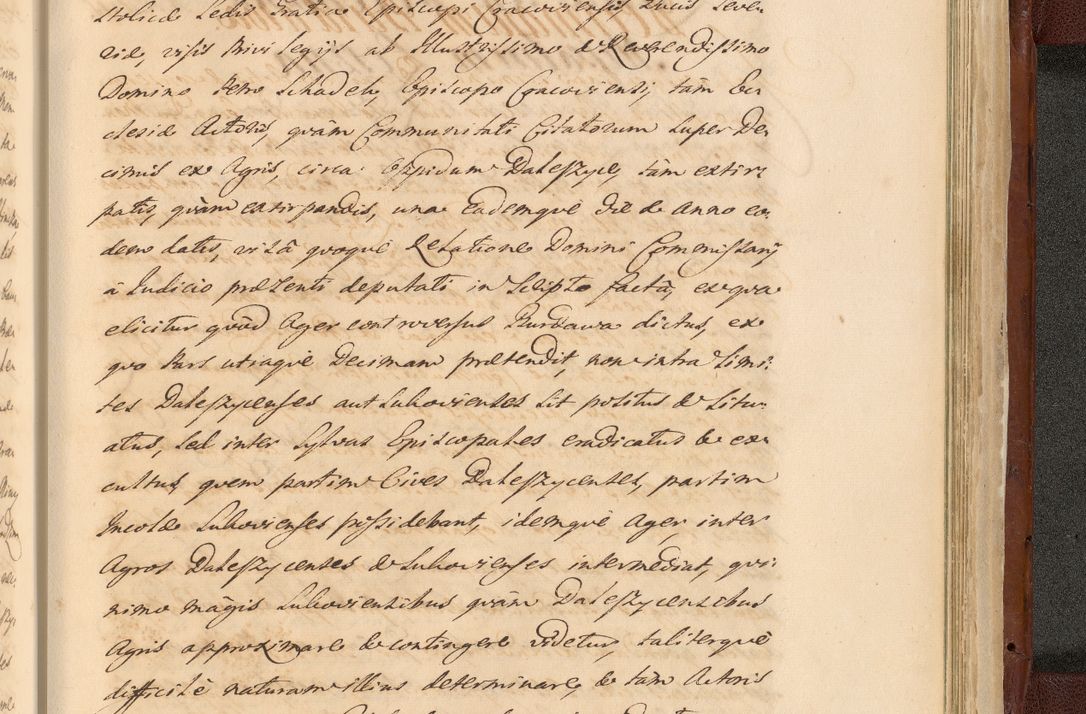 stolicæ Sedis Gratia Episcopi Cracoviensis Ducis Seve-
riæ, visis Privilegijs ab Illustrissimo & Reverendissimo
Domino Petro Schadek, Episcopo Cracoviensi, tàm Ec-
clesiæ Actoris, quàm Communitati Citatorum super De-
cimis ex Agris, circa Oppidum Daleszyce, tàm extir-
patis, quàm extirpandis, una Eademque die & Anno eo-
dem datis, visâ quoque Relatione Domini Commissarij
à Judicio præsenti deputati in Scripto facta, ex qua
elicitur quòd Ager controversus Burdawa dictus, ex
quo Pars utraque Decimam prætendit, non intra Limi-
tes Daleszycenses aut Lukovienses sit positus & situ-
atus, sed inter Sylvas Episcopales eradicatus & ex-
cultus, quem partim Cives Daleszycenses, partim
Incolæ Lukovienses possidebant, idemque Ager, inter
Agros Daleszycenses & Lukovienses intermediat, qui-
nimo màgis Lukoviensibus quàm Daleszycensibus
Agris approximare & contingere videtur, taliterquè
difficilè naturam illius determinare, & tàm Actoris